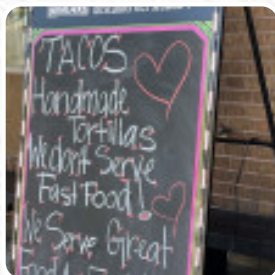 TACOS
Handmade
Tortillas
We dont Serve
Fast Food!
We Serve Great
Food